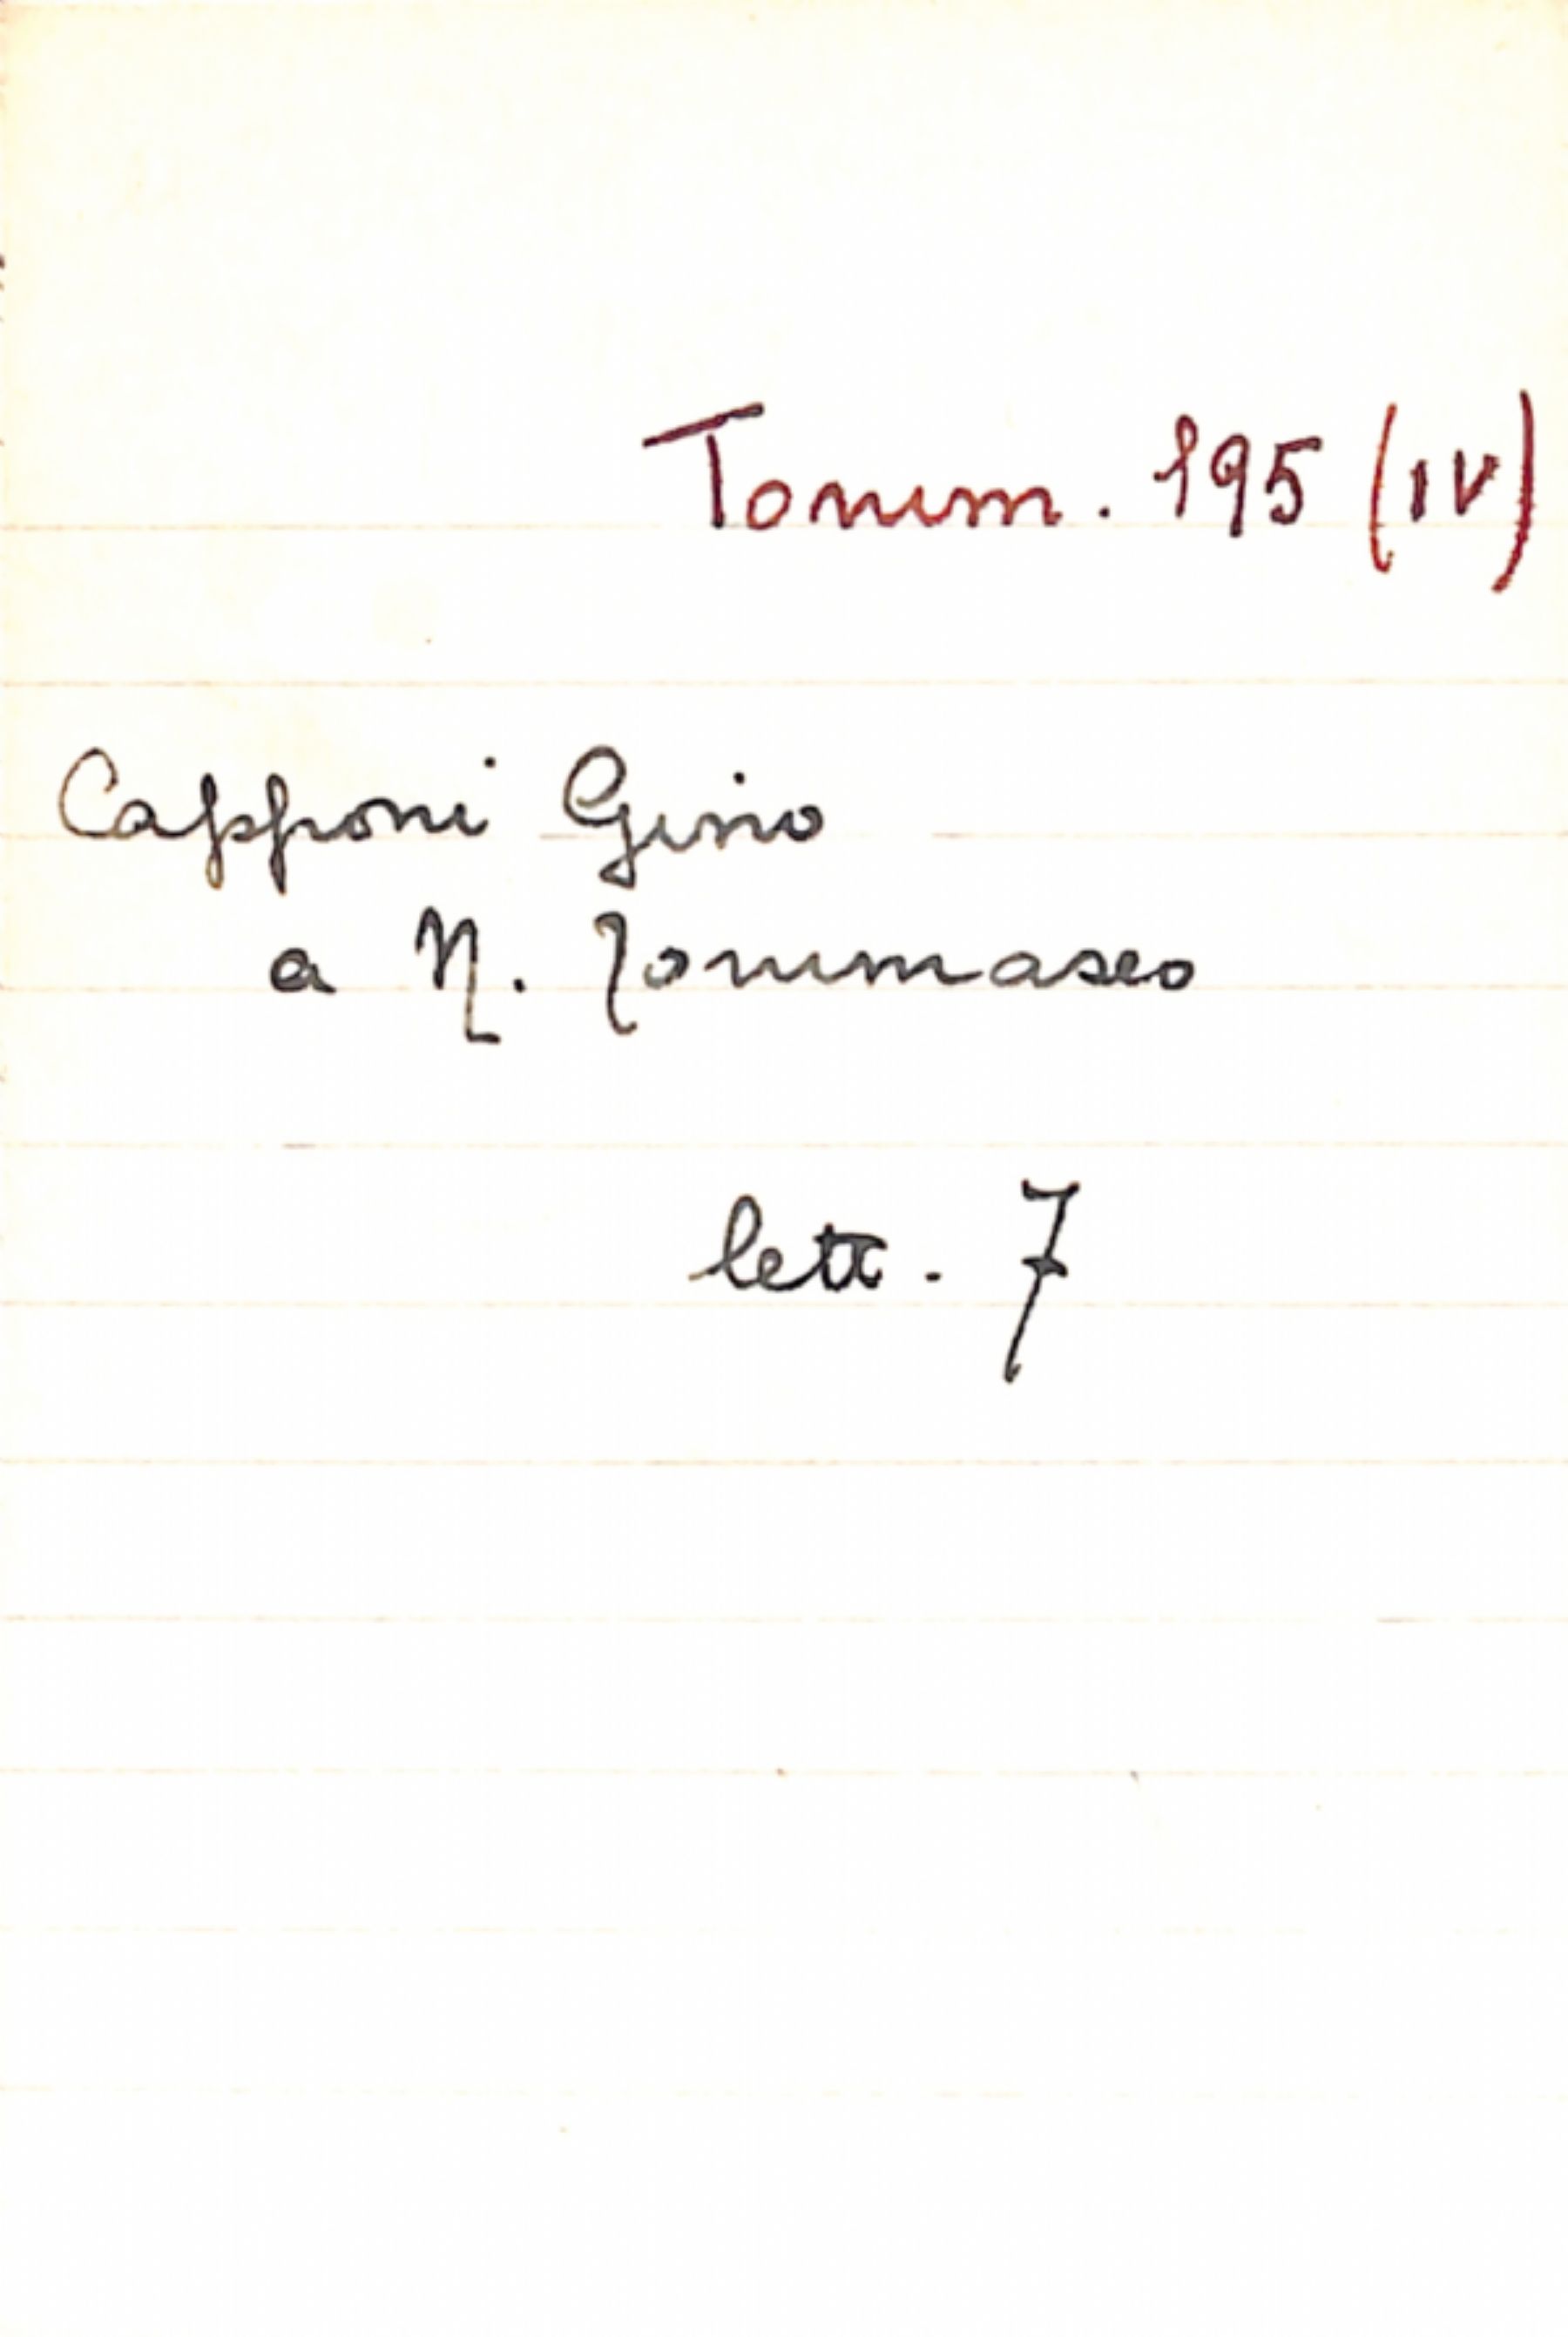 Tomm. 195 (IV)
Capponi Gino
a N. Tommaseo
lett. 7